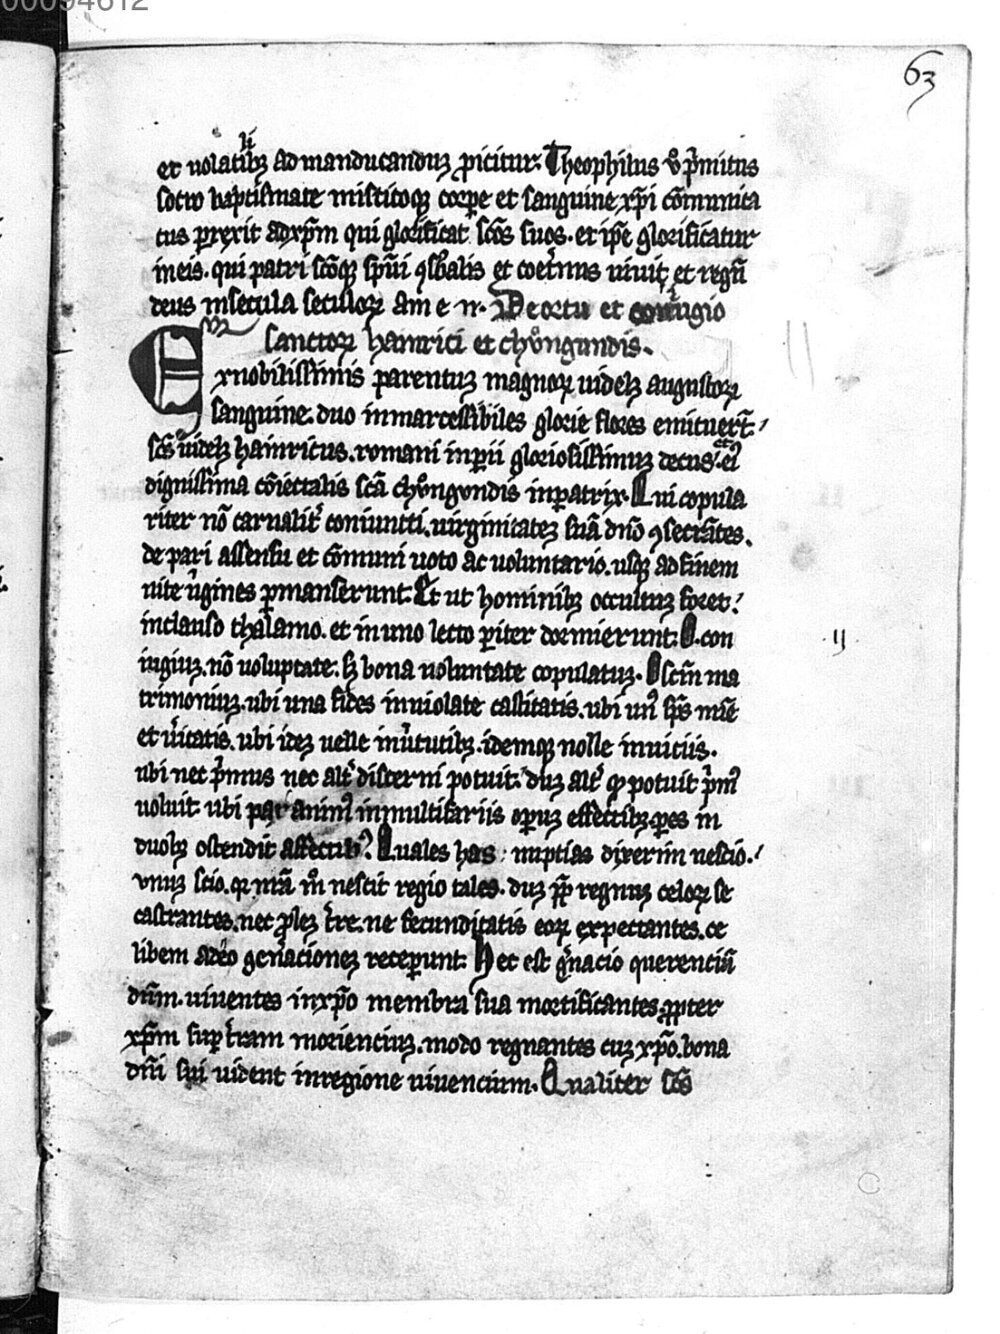 00094612
63
li
et uolatibꝫ ad manducanduꝫ ꝓicitur. Theophilus ṽ p̄mitus
socio baptismate misticoqꝫ corꝑe et sanguine xp̄i cōmunica
tus ꝑrexit ad xp̄m qui glorificat sc̄os suos. et ip̄e glorificatur
in eis. qui patri sc̄oqꝫ sp̄ui ꝯsb̄alis et coet̄nus uiuit et regn̄
deus in secula seculoꝝ am e n. De ortu et coniugio
sanctoꝝ hainrici et chůngundis.
Ex nobilissimis parentuꝫ magnoꝝ uidelꝫ augustoꝝ
sanguine. duo inmarcessibiles glorie flores emituer̄t.
sc̄s uidelꝫ hainricus. romani inꝑii gloriosissimuꝫ decus. eiꝰ
dignissima cōiectalis sc̄a chůngundis inꝑatrix. Qui copula
riter nō carnalit̄ coniuncti. uirginitateꝫ suā dn̄o ꝯsecrātes.
de pari assensu et cōmuni uoto ac uoluntario. usqꝫ ad finem
uite ūgines ꝑmanserunt. Et ut hominibꝫ occultuꝫ foret.
inclauso thalamo. et in uno lecto ꝑiter dormierunt. O con
iugiuꝫ. nō uoluptate. sꝫ bona uoluntate copulatuꝫ. O sc̄m ma
trimoniuꝫ. ubi una fides inuiolate castitatis. ubi unꝰ sp̄s mīe
et ūitatis. ubi ideꝫ uelle in ūtutibꝫ. idemqꝫ nolle in uiciis.
ubi nec p̄mus nec alt̄ discerni potuit. duꝫ alt̄ qđ potuit p̄mꝰ
uoluit ubi par animꝰ in multifariis opuꝫ effectibꝫ. ꝑes in
duobꝫ ostendit affectibꝰ. Quales has nuptias dixerim nescio.
vnuꝫ scio. qꝛ nr̄a m̊ nescit regio tales. duꝫ ꝓpt̄ regnuꝫ celoꝝ se
castrantes. nec ꝓleꝫ t̄re. ne fecunditatis eoꝝ expectantes. ce
libem adeo gen̄acioneꝫ receꝑunt. Hec est gn̄acio querenciū
dn̄m. uiuentes in xp̄o membra sua mortificantes. ꝓpter
xp̄m suꝑ t̄ram morienciuꝫ. modo regnantes cuꝫ xp̄o. bona
dn̄i sui uident in regione uiuencium. Qualiter sc̄s
ij